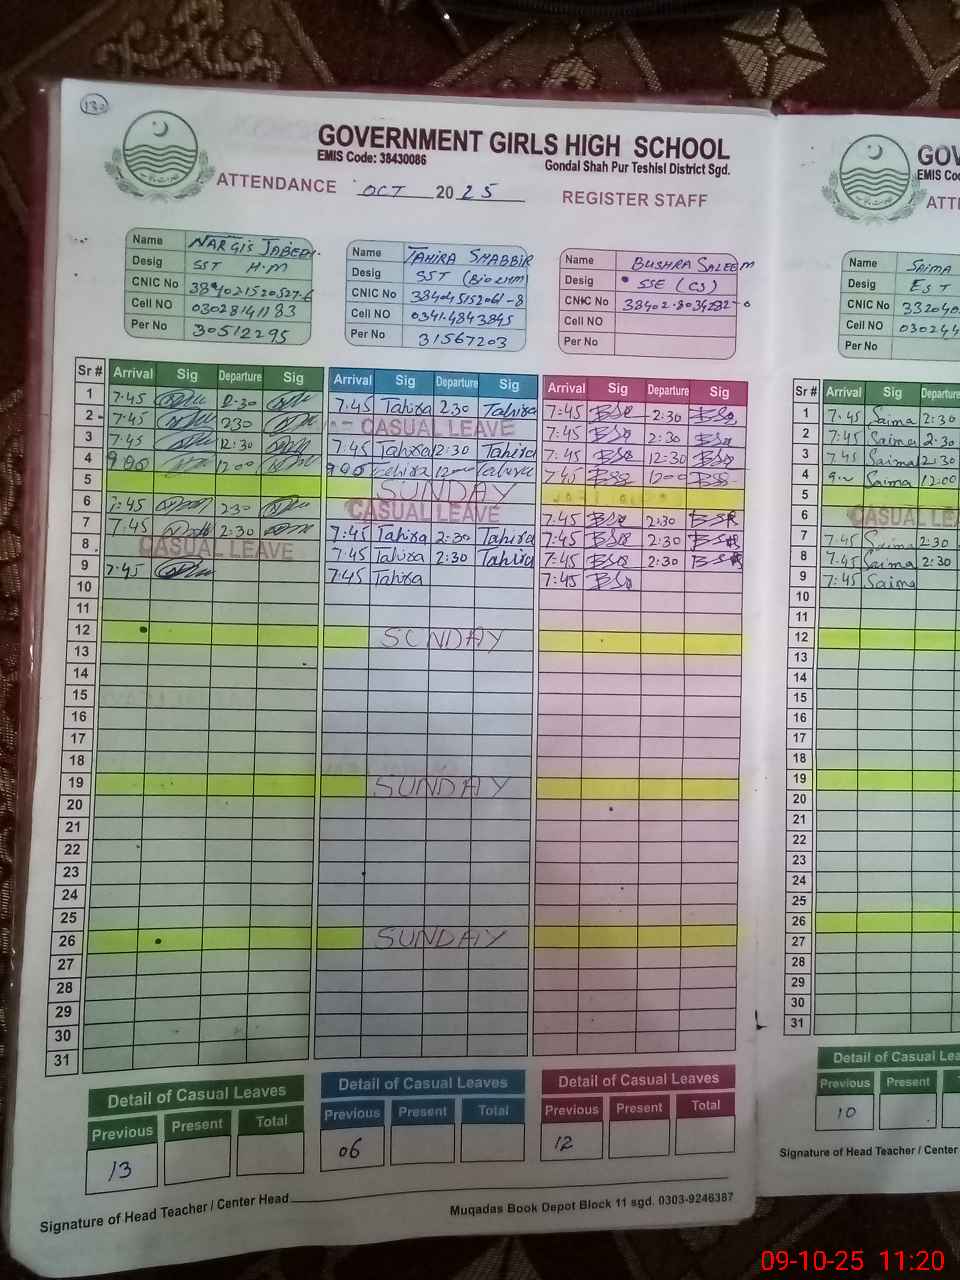 130
GOVERNMENT GIRLS HIGH SCHOOL
EMIS Code: 38430086
Gondal Shah Pur Teshisl District Sgd.
ATTENDANCE OCT 2025 REGISTER STAFF
Name NARGIS JABEEN.
Desig SST H.M
CNIC No
Cell NO 03028141183
Per No 30512295
Name TAHIRA SHABBIR
Desig SST (Bio chm)
CNIC No
Cell NO 0341-4843845
Per No 31567203
Name BUSHRA SALEEM
Desig SSE (CS)
CNIC No
Cell NO
Per No
Sr # Arrival Sig Departure Sig Arrival Sig Departure Sig Arrival Sig Departure Sig
1 7:45 2:30 7:45 Tahira 2:30 Tahira 7:45 BSa 2:30 BSa
2 7:45 2:30 CASUAL LEAVE 7:45 BSa 2:30 BSa
3 7:45 12:30 7:45 Tahira 12:30 Tahira 7:45 BSa 12:30 BSa
4 9:00 12:00 9:00 Tahira 12:00 Tahira 7:45 BSa 12:00 BSa
5 SUNDAY
6 7:45 2:30 CASUAL LEAVE 7:45 BSa 2:30
7 7:45 2:30 7:45 Tahira 2:30 Tahira 7:45 BSa 2:30
8 CASUAL LEAVE 7:45 Tahira 2:30 Tahira 7:45 BSa 2:30
9 7:45 7:45 Tahira 7:45 BSa
10
11
12 SUNDAY
13
14
15
16
17
18
19 SUNDAY
20
21
22
23
24
25
26 SUNDAY
27
28
29
30
31
Detail of Casual Leaves
Previous Present Total
13
Detail of Casual Leaves
Previous Present Total
06
Detail of Casual Leaves
Previous Present Total
12
Signature of Head Teacher / Center Head
Muqadas Book Depot Block 11 sgd. 0303-9246387
GOV
EMIS Co
ATT
Name SAIMA
Desig EST
CNIC No 332040
Cell NO 030244
Per No
Sr # Arrival Sig Departure
1 7:45 Saima 2:30
2 7:45 Saima 2:30
3 7:45 Saima 12:30
4 Saima 12:00
5
6 CASUAL LE
7 7:45 Saima 2:30
8 7:45 Saima 2:30
9 7:45 Saima
10
11
12
13
14
15
16
17
18
19
20
21
22
23
24
25
26
27
28
29
30
31
Detail of Casual Lea
Previous Present T
10
Signature of Head Teacher / Center
09-10-25 11:20